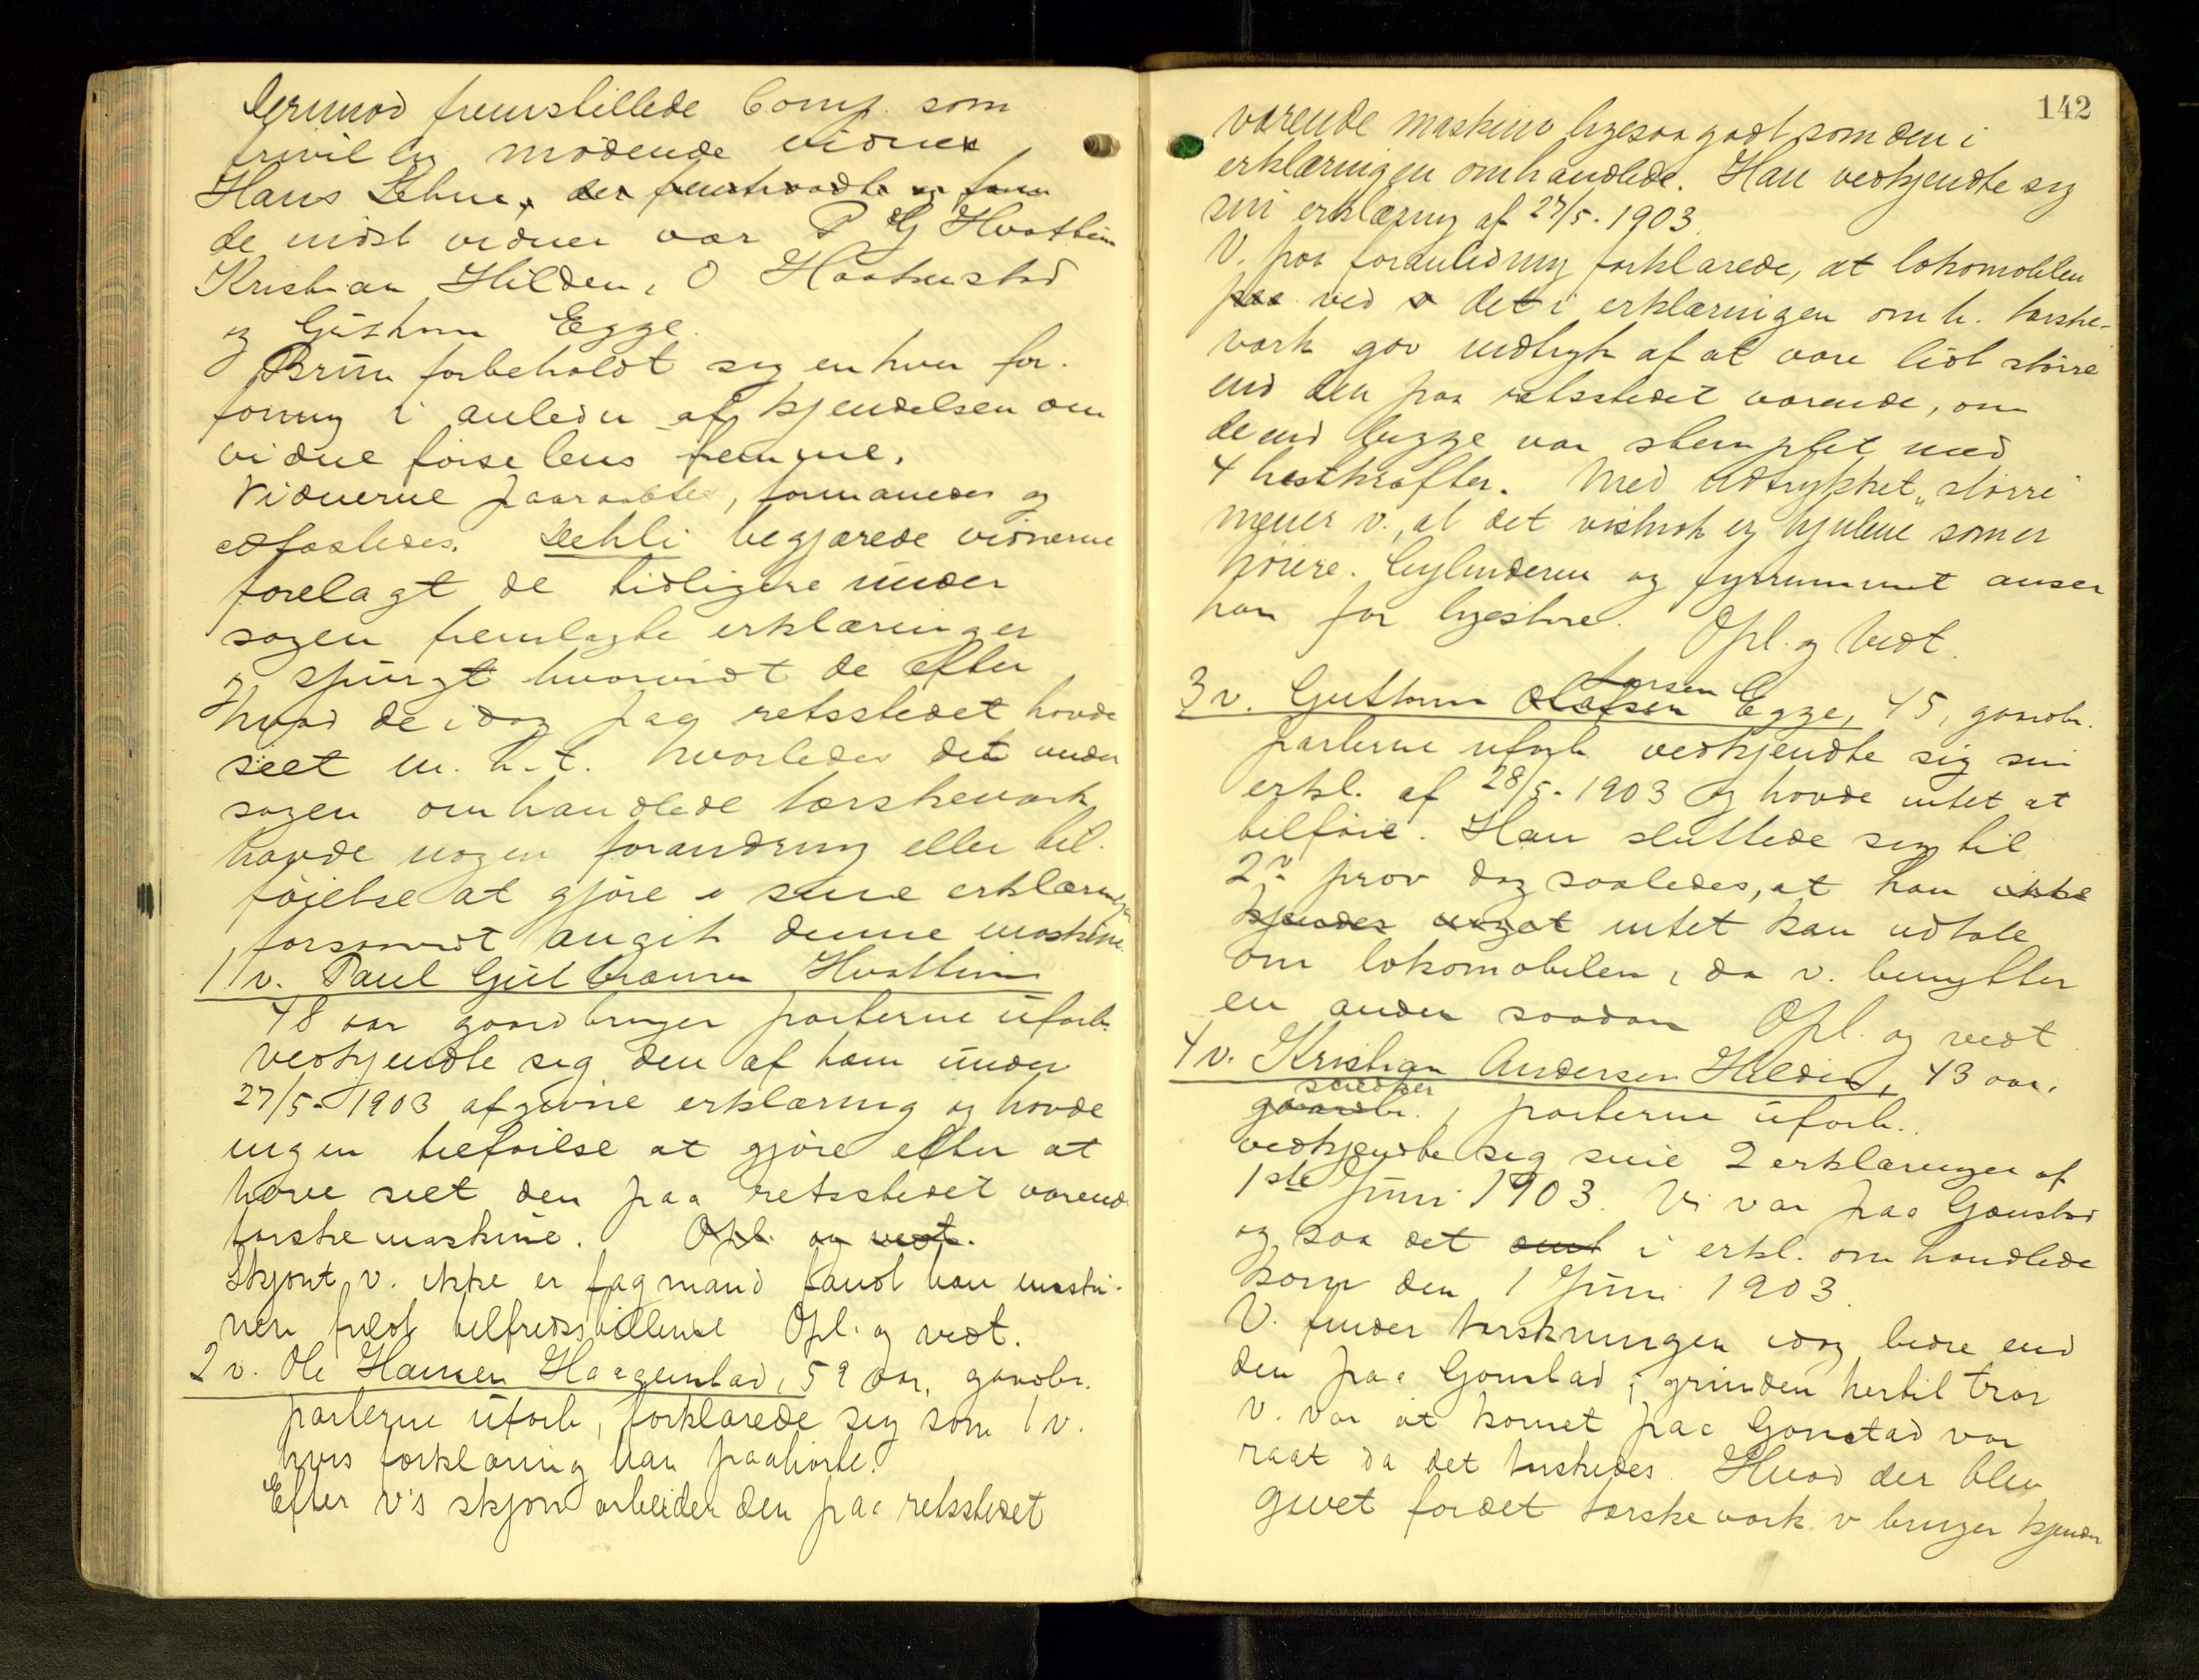 Derimod fremstillede Comp. som
frivillig mødende vidner
Hans Lehne, der fremstod og
de indst vidner var P G Hvattum
Kristian Hilden, O Haakenstad
og Guthorm Egge.
Brün forbeholdt sig enhver for-
føining i anledn af kjendelsen om
vidneførselens fremme.
Vidnerne paaraabtes, formanedes og
edfæstedes. Dehli begjærede vidnerne
forelagt de tidligere under
sagen fremlagte erklæringer
og spurgt hvorvidt de efter
hvad de idag paa retsstedet havde
seet m. h. t. hvorledes det under
sagen omhandlede tærskeværk
havde nogen forandring eller til-
føielse at gjøre i sine erklæringer
forsaavidt angik denne maskine.
1 v. Paul Gulbransen Hvattum
48 aar gaardbruger parterne uforb.
vedkjendte sig den af ham under
27/5-1903 afgivne erklæring og havde
ingen tilføielse at gjøre efter at
have seet den paa retsstedet værende
tærskemaskine. Opl. og vedt.
Skjønt v. ikke er fagmand fandt han maski-
nen fuldt tilfredsstillende Opl. og vedt.
2 v. Ole Hansen Haagenstad, 59 aar, gaardbr.
parterne uforb, forklarede sig som 1 v.
hvis forklaring han paahørte.
Efter v's skjøn arbeider den paa retsstedet
142
værende maskine ligesaa godt som den i
erklæringen omhandlede. Han vedkjendte sig
sin erklæring af 27/5-1903.
V. paa foranledning forklarede, at lokomobilen
paa ved det i erklæringen omh. tærske-
værk gav indtryk af at være lidt større
end den paa retsstedet værende, om
de end begge var stemplet med
4 hestkræfter. Med udtrykket „større"
mener v., at det vistnok er hjulene som er
høiere. Cylinderen og fyrrummet anser
han for ligestore. Opl. og Vedt.
Larsen
3 v. Guthorm Olafsen Egge, 45, gaardbr.
parterne uforb. vedkjendte sig sin
erkl. af 28/5-1903 og havde intet at
tilføie. Han sluttede sig til
2 v. prov dog saaledes, at han ikke
kjender noget intet kan udtale
om lokomobilen, da v. benytter
en anden saadan Opl. og vedt
4 v. Kristian Andersen Hilden, 43 aar,
snedker
gaardbr., parterne uforb.
vedkjendte sig sine 2 erklæringer af
1ste Juni 1903. Vi var paa Gonstad
og saa det omt i erkl. omhandlede
korn den 1 Juni 1903.
V. finder tærskningen idag bedre end
den paa Gonstad; grunden hertil tror
v. var at kornet paa Gonstad var
raat da det tærskedes. Hvad der blev
givet for det tærskeværk v bruger kjender